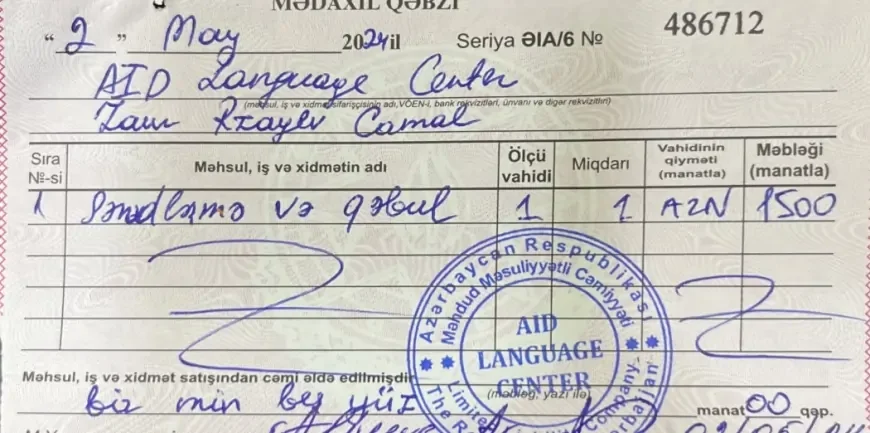 MƏDAXİL QƏBZİ
“2” May 2024 il Seriya ƏIA/6 № 486712
AID Language Center
(məhsul, iş və xidmət sifarişçisinin adı, VÖEN-i, bank rekvizitləri, ünvanı və digər rekvizitləri)
Zaur Rzayev Camal
Sıra №-si Məhsul, iş və xidmətin adı Ölçü vahidi Miqdarı Vahidinin qiyməti (manatla) Məbləği (manatla)
1 Sənədləmə və qəbul 1 1 AZN 1500
Azərbaycan Respublikası
Məhdud Məsuliyyətli Cəmiyyəti
AID
LANGUAGE
CENTER
Məhsul, iş və xidmət satışından cəmi əldə edilmişdir
bir min beş yüz manat 00 qəp.
(məbləğ, yazı ilə)